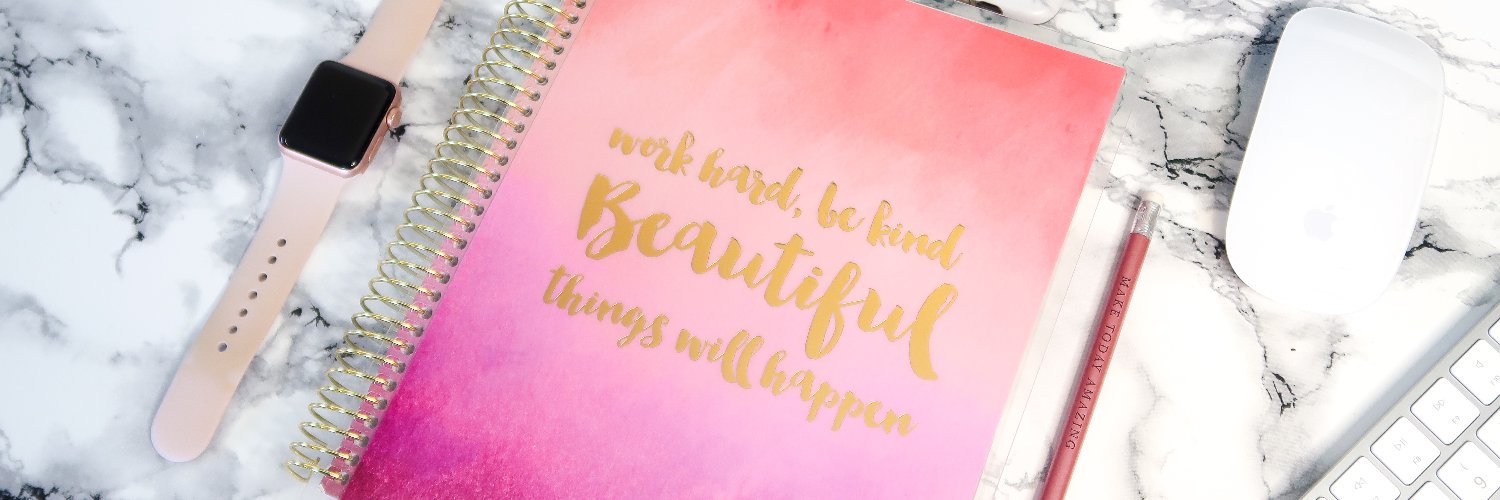 work hard, be kind
Beautiful
things will happen
MAKE TODAY AMAZING